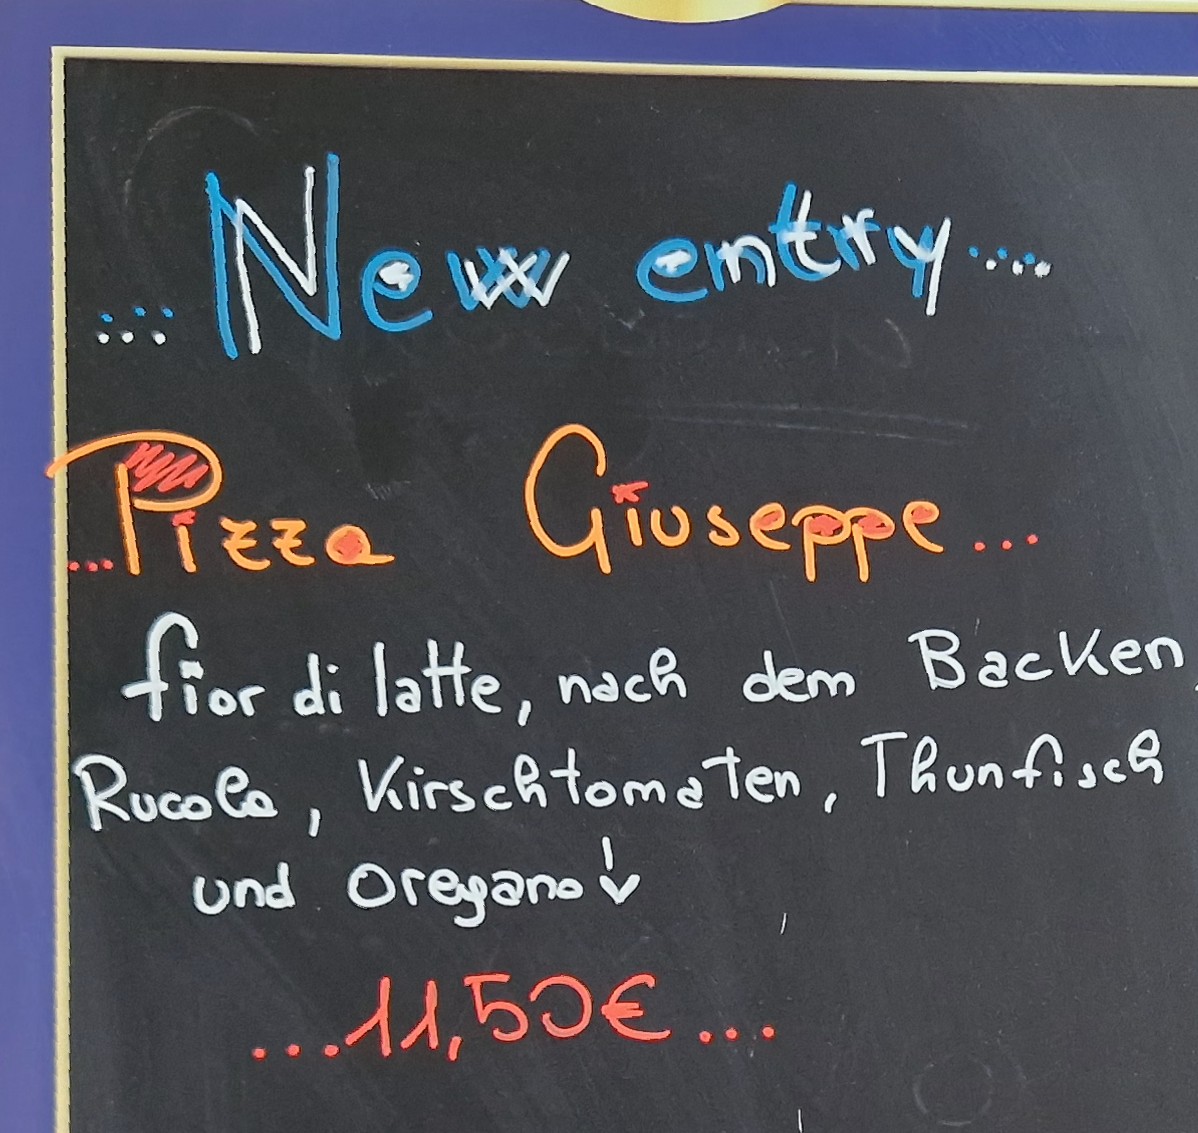 ... New entry ....
... Pizza Giuseppe ...
fior di latte, nach dem Backen,
Rucola, Kirschtomaten, Thunfisch
und Oregano ↓
... 11,50€ ...